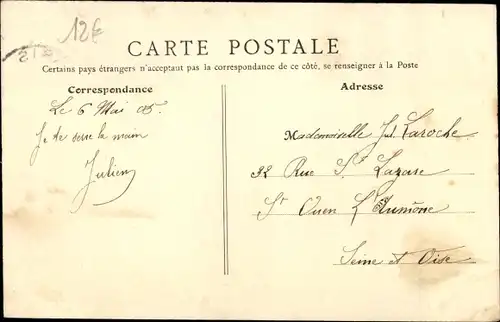 12€
CARTE POSTALE
Certains pays étrangers n'acceptant pas la correspondance de ce côté, se renseigner à la Poste
Correspondance
Adresse
Le 6 Mai 05.
Je te serre la main
Julien
Mademoiselle J. Laroche
32 Rue St Lazare
St Ouen L'Aumône
Seine et Oise